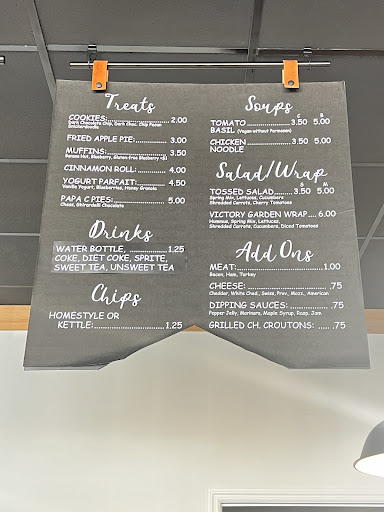 Treats
COOKIES: 2.00
Dark Chocolate Chip, Dark Choc. Chip Pecan
Snickerdoodle
FRIED APPLE PIE: 3.00
MUFFINS: 3.50
Banana Nut, Blueberry, Gluten-free Blueberry +$1
CINNAMON ROLL: 4.50
YOGURT PARFAIT: 4.50
Vanilla Yogurt, Blueberries, Honey Granola
PAPA C PIES: 5.00
Chess, Ghirardelli Chocolate
Drinks
WATER BOTTLE, 1.25
COKE, DIET COKE, SPRITE,
SWEET TEA, UNSWEET TEA
Chips
HOMESTYLE OR
KETTLE: 1.25
Soups
C B
TOMATO 3.50 5.00
BASIL (Vegan without Parmesan)
CHICKEN 3.50 5.00
NOODLE
Salad/Wrap
S M
TOSSED SALAD 3.50 5.00
Spring Mix, Lettuces, Cucumbers
Shredded Carrots, Cherry Tomatoes
VICTORY GARDEN WRAP 6.00
Hummus, Spring Mix, Lettuces,
Shredded Carrots, Cucumbers, Diced Tomatoes
Add Ons
MEAT: 1.00
Bacon, Ham, Turkey
CHEESE: .75
Cheddar, White Ched., Swiss, Prov., Mozz., American
DIPPING SAUCES: .75
Pepper Jelly, Marinara, Maple Syrup, Rasp. Jam
GRILLED CH. CROUTONS: .75